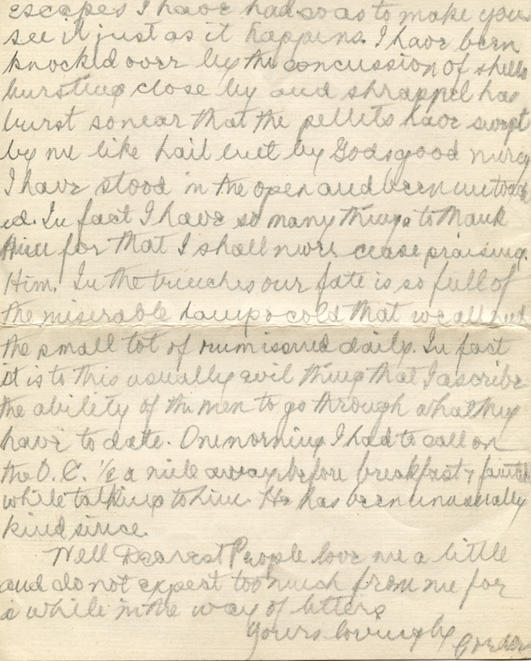 escapes I have had so as to make you
see it just as it happens. I have been
knocked over by the concussion of shells
bursting close by and shrapnel has
burst so near that the pellets have swept
by me like hail but by Gods good mercy
I have stood in the open and been untouch
ed. In fact I have so many things to thank
Him for that I shall never cease praising
Him. In the trenches our fate is so full of
the miserable damp & cold that we all
the small tot of rum issued daily. In fact
it is to this usually evil thing that I ascribe
the ability of the men to go through what they
have to date. One morning I had to call on
the O.C. ½ a mile away before breakfast & fainted
while talking to him. He has been unusually
kind since.
Well Dearest People love me a little
and do not expect too much from me for
a while in the way of letters
Yours lovingly Gordon